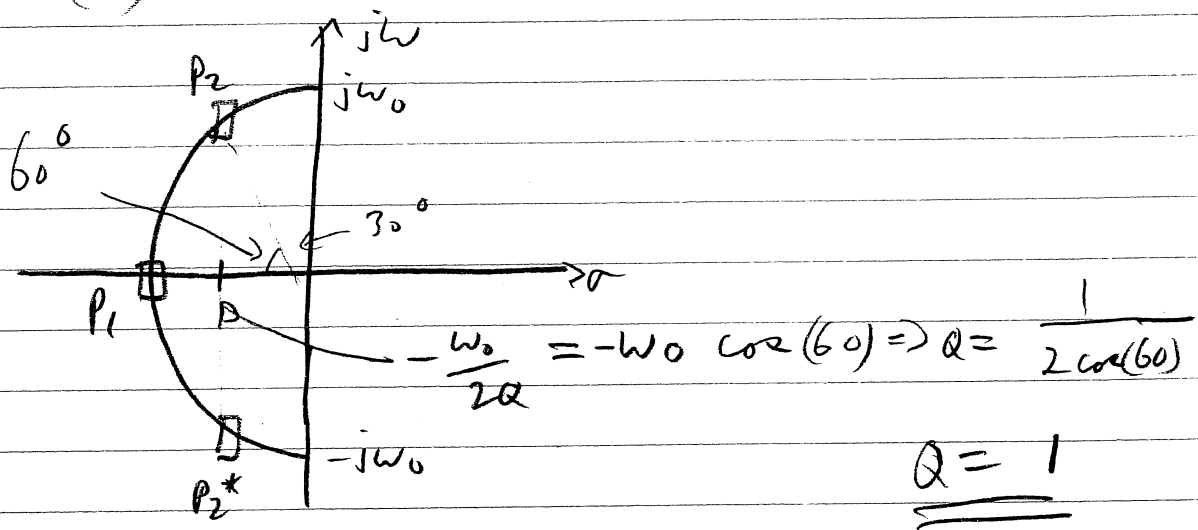 jω
P2
jω0
60°
30°
σ
P1
-ω0/2Q = -ω0 cos(60) => Q = 1/2cos(60)
-jω0
P2*
Q = 1